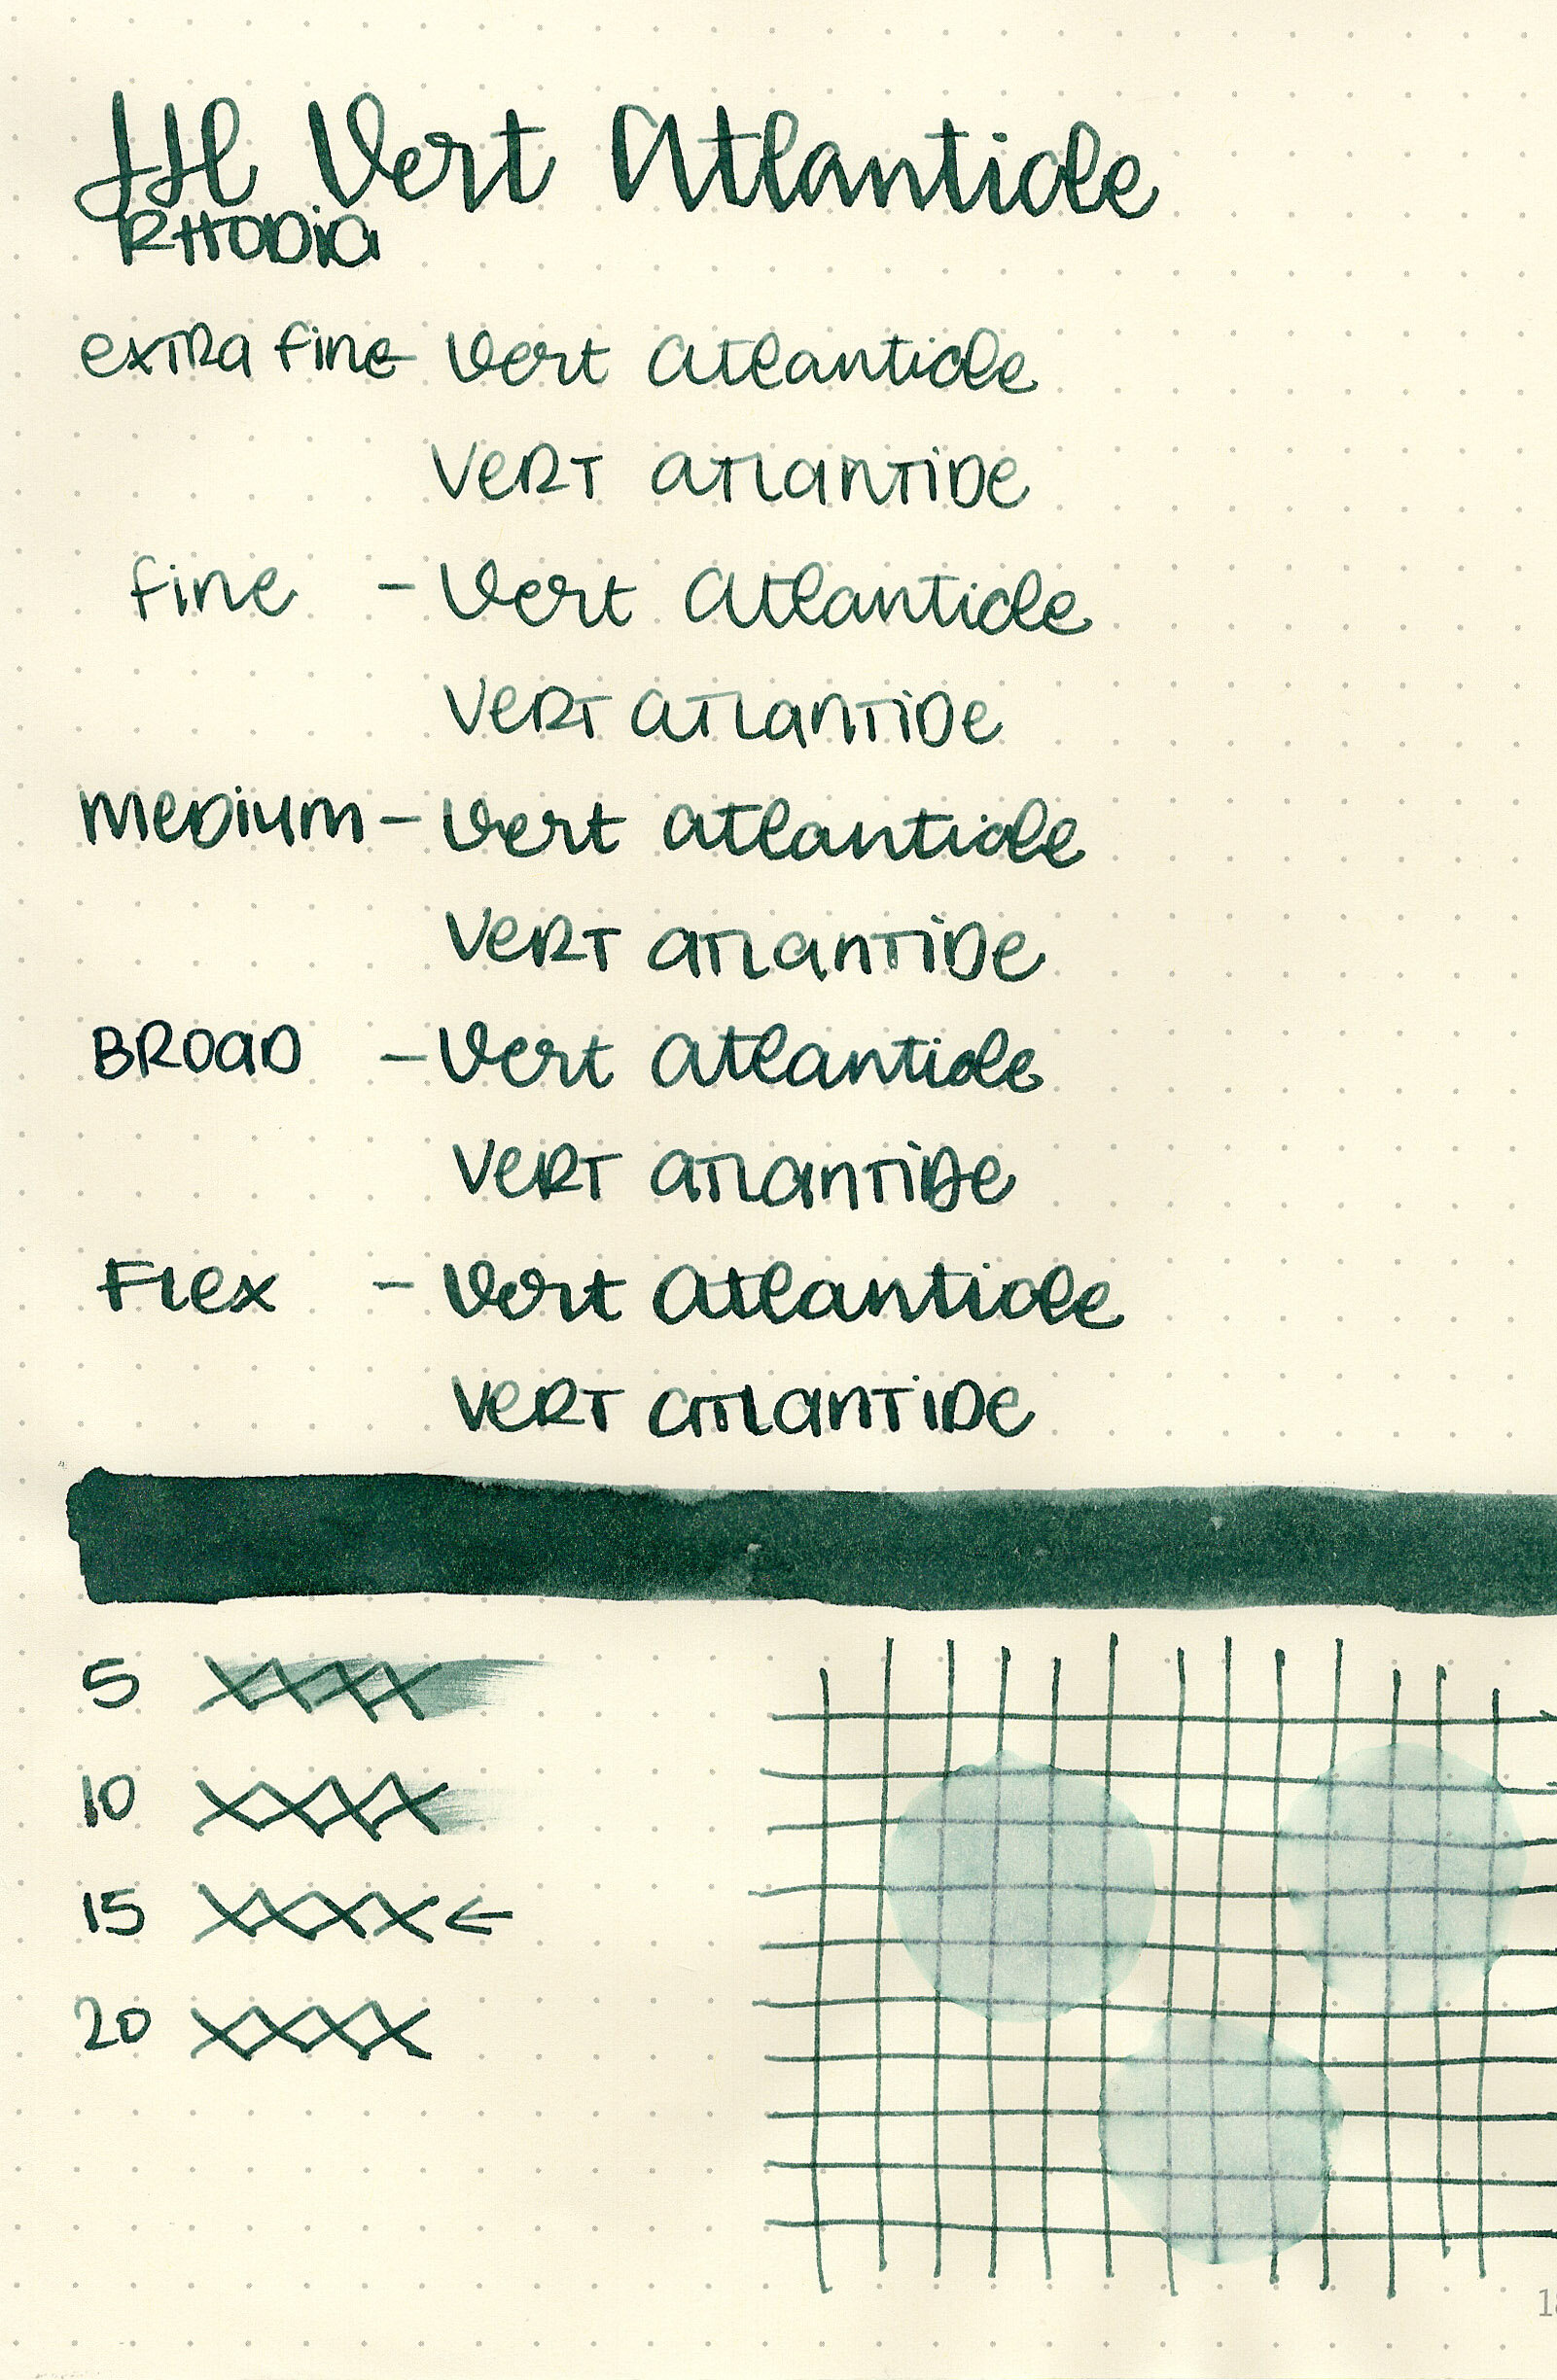 JH Vert Atlantide
RHODIA
extra fine - Vert Atlantide
VERT ATLANTIDE
fine - Vert Atlantide
VERT ATLANTIDE
MEDIUM - Vert Atlantide
VERT ATLANTIDE
BROAD - Vert Atlantide
VERT ATLANTIDE
FLEX - Vert Atlantide
VERT ATLANTIDE
5
10
15 ←
20